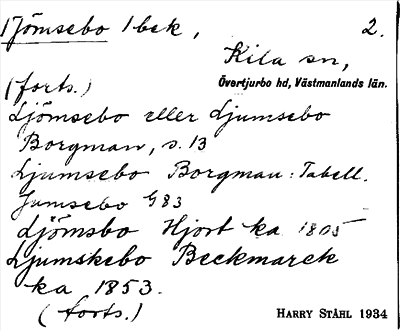 Tjömsebo 1 bek, 2.
Kila sn,
Övertjurbo hd, Västmanlands län.
(forts.)
Ljömsebo eller Ljumsebo
Borgman, s. 13
Ljumsebo Borgman: Tabell.
Jumsebo G 83
Ljömsbo Hjort ka 1805
Ljumskebo Beckmarck
ka 1853.
(forts.)
HARRY STÅHL 1934